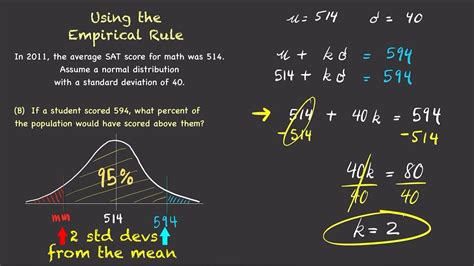 Using the
Empirical Rule
In 2011, the average SAT score for math was 514.
Assume a normal distribution
with a standard deviation of 40.
(B) If a student scored 594, what percent of
the population would have scored above them?
95%
514
594
2 std devs
from the mean
u = 514 d = 40
u + kd = 594
514 + kd = 594
→ 514 + 40k = 594
-514 -514
40k = 80
40 40
k = 2